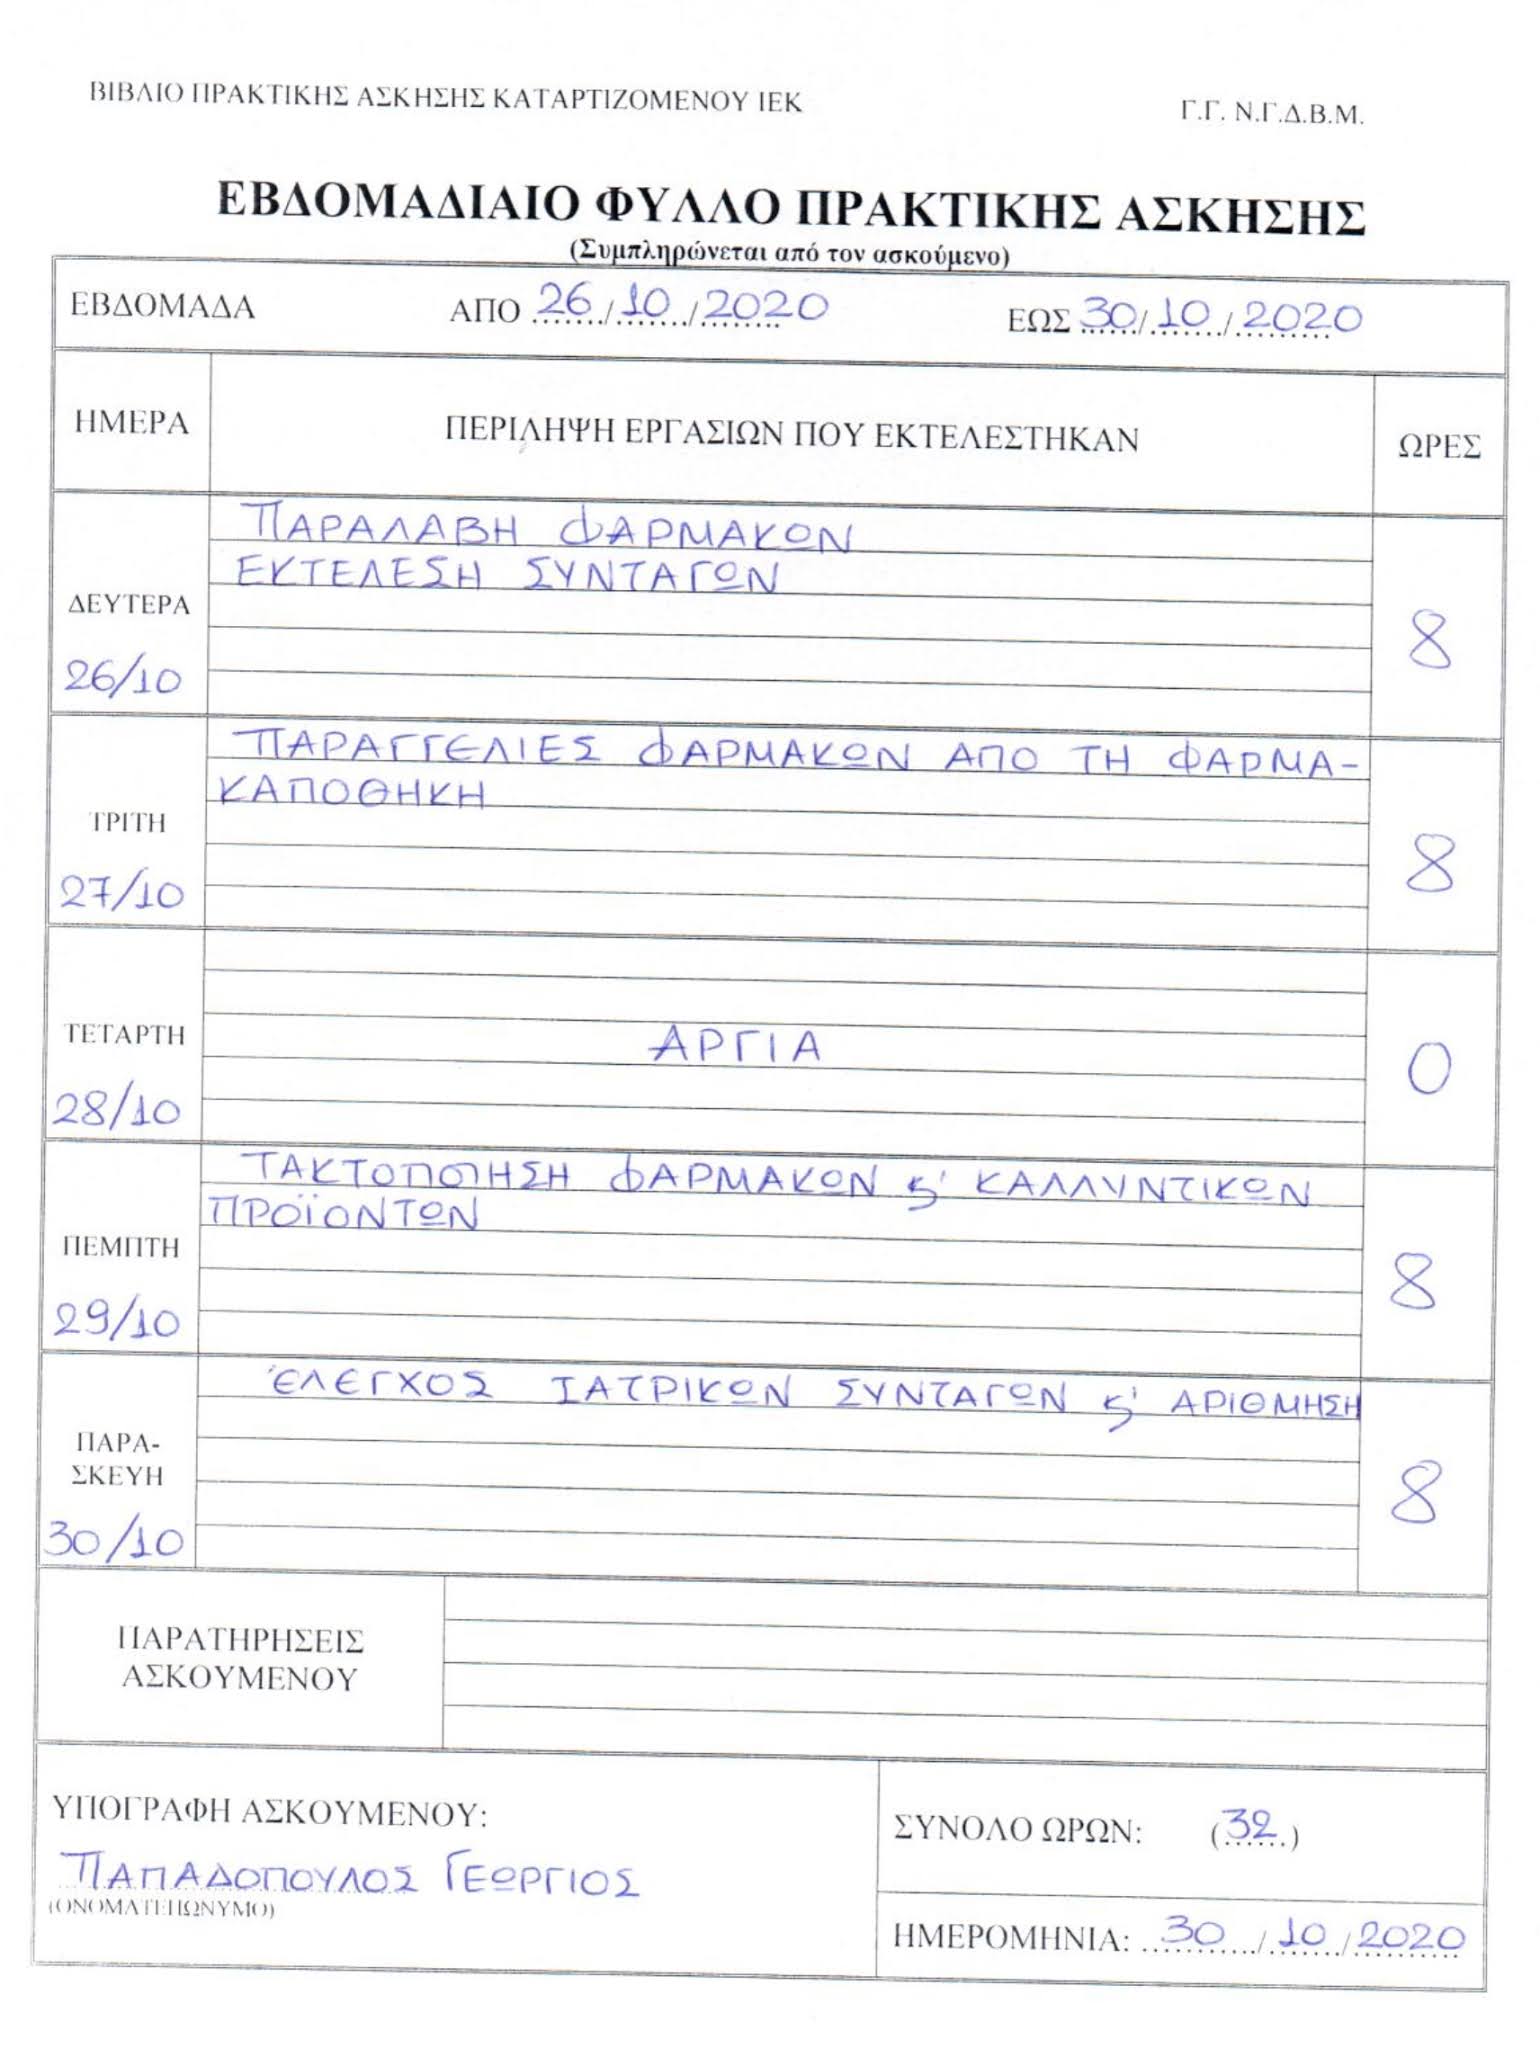 ΒΙΒΛΙΟ ΠΡΑΚΤΙΚΗΣ ΑΣΚΗΣΗΣ ΚΑΤΑΡΤΙΖΟΜΕΝΟΥ ΙΕΚ
Γ.Γ. Ν.Γ.Δ.Β.Μ.
ΕΒΔΟΜΑΔΙΑΙΟ ΦΥΛΛΟ ΠΡΑΚΤΙΚΗΣ ΑΣΚΗΣΗΣ
(Συμπληρώνεται από τον ασκούμενο)
ΕΒΔΟΜΑΔΑ ΑΠΟ 26/10/2020 ΕΩΣ 30/10/2020
ΗΜΕΡΑ ΠΕΡΙΛΗΨΗ ΕΡΓΑΣΙΩΝ ΠΟΥ ΕΚΤΕΛΕΣΤΗΚΑΝ ΩΡΕΣ
ΠΑΡΑΛΑΒΗ ΦΑΡΜΑΚΩΝ
ΕΚΤΕΛΕΣΗ ΣΥΝΤΑΓΩΝ
ΔΕΥΤΕΡΑ
26/10
8
ΠΑΡΑΓΓΕΛΙΕΣ ΦΑΡΜΑΚΩΝ ΑΠΟ ΤΗ ΦΑΡΜΑ-
ΚΑΠΟΘΗΚΗ
ΤΡΙΤΗ
27/10
8
ΤΕΤΑΡΤΗ
28/10
ΑΡΓΙΑ
0
ΤΑΚΤΟΠΟΙΗΣΗ ΦΑΡΜΑΚΩΝ ϗ' ΚΑΛΛΥΝΤΙΚΩΝ
ΠΡΟΪΟΝΤΩΝ
ΠΕΜΠΤΗ
29/10
8
ΈΛΕΓΧΟΣ ΙΑΤΡΙΚΩΝ ΣΥΝΤΑΓΩΝ ϗ' ΑΡΙΘΜΗΣΗ
ΠΑΡΑ-
ΣΚΕΥΗ
30/10
8
ΠΑΡΑΤΗΡΗΣΕΙΣ
ΑΣΚΟΥΜΕΝΟΥ
ΥΠΟΓΡΑΦΗ ΑΣΚΟΥΜΕΝΟΥ:
ΠΑΠΑΔΟΠΟΥΛΟΣ ΓΕΩΡΓΙΟΣ
(ΟΝΟΜΑΤΕΠΩΝΥΜΟ)
ΣΥΝΟΛΟ ΩΡΩΝ: (32)
ΗΜΕΡΟΜΗΝΙΑ: 30/10/2020